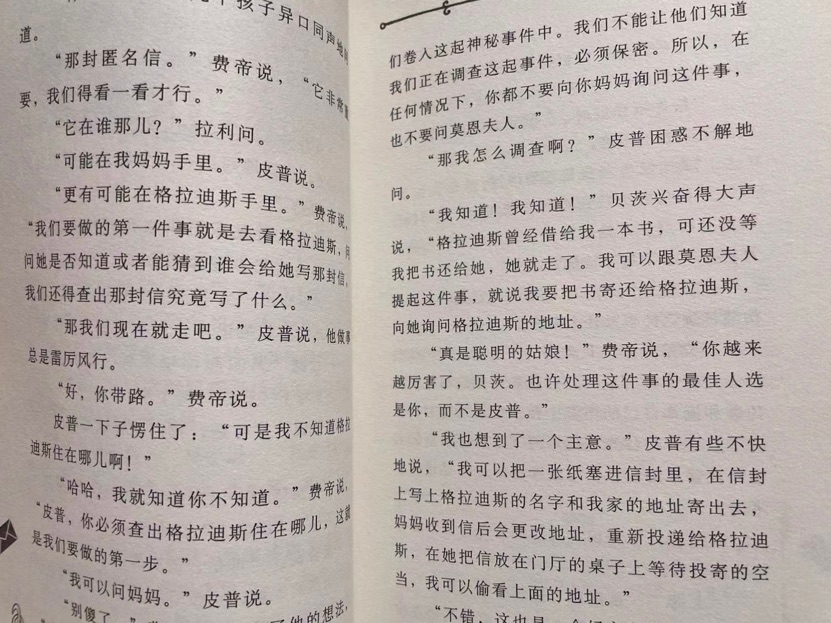 孩子异口同声地
道。
“那封匿名信。”费帝说，“它非常
要，我们得看一看才行。”
“它在谁那儿？”拉利问。
“可能在我妈妈手里。”皮普说。
“更有可能在格拉迪斯手里。”费帝说，
“我们要做的第一件事就是去看格拉迪斯，问
问她是否知道或者能猜到谁会给她写那封信。
我们还得查出那封信究竟写了什么。”
“那我们现在就走吧。”皮普说，他做事
总是雷厉风行。
“好，你带路。”费帝说。
皮普一下子愣住了：“可是我不知道格拉
迪斯住在哪儿啊！”
“哈哈，我就知道你不知道。”费帝说，
“皮普，你必须查出格拉迪斯住在哪儿，这就
是我们要做的第一步。”
“我可以问妈妈。”皮普说。
“别傻了。”
了他的想法，
们卷入这起神秘事件中。我们不能让他们知道
我们正在调查这起事件，必须保密。所以，在
任何情况下，你都不要向你妈妈询问这件事，
也不要问莫恩夫人。”
“那我怎么调查啊？”皮普困惑不解地
问。
“我知道！我知道！”贝茨兴奋得大声
说，“格拉迪斯曾经借给我一本书，可还没等
我把书还给她，她就走了。我可以跟莫恩夫人
提起这件事，就说我要把书寄还给格拉迪斯，
向她询问格拉迪斯的地址。”
“真是聪明的姑娘！”费帝说，“你越来
越厉害了，贝茨。也许处理这件事的最佳人选
是你，而不是皮普。”
“我也想到了一个主意。”皮普有些不快
地说，“我可以把一张纸塞进信封里，在信封
上写上格拉迪斯的名字和我家的地址寄出去，
妈妈收到信后会更改地址，重新投递给格拉迪
斯，在她把信放在门厅的桌子上等待投寄的空
当，我可以偷看上面的地址。”
“不错，这也是一个